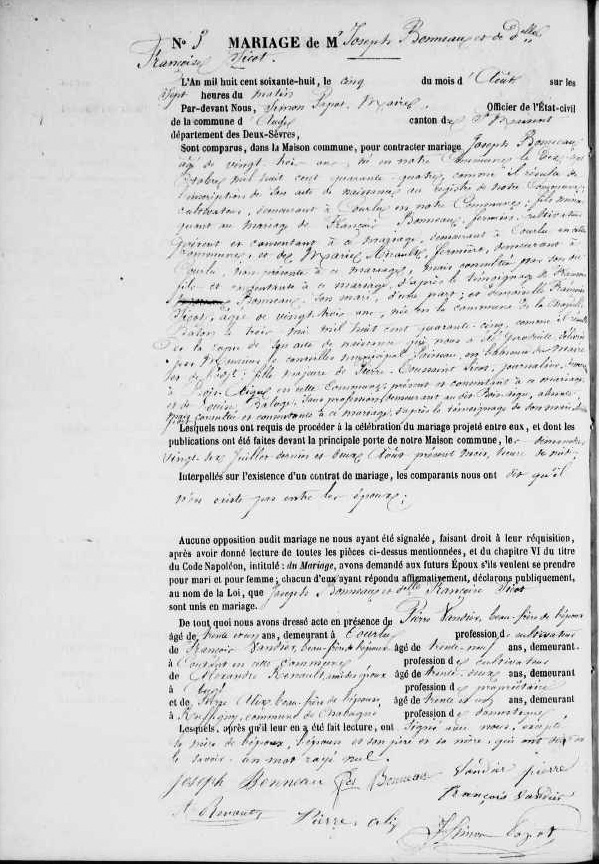 No 5 MARIAGE de Mr Joseph Bonneau et de Delle
Françoise Sicot.
L'An mil huit cent soixante-huit, le cinq du mois d'Août sur les
sept heures du matin
Par-devant Nous, Simon Papot, Maire, Officier de l'État-civil
de la commune d' canton de St Maixent
département des Deux-Sèvres,
Sont comparus, dans la Maison commune, pour contracter mariage Joseph Bonneau
âgé de vingt trois ans, né en notre Commune le dix
Octobre mil huit cent quarante quatre, comme il résulte de
l'inscription de son acte de naissance au registre de notre Commune,
cultivateur, demeurant à Courlu en notre Commune; fils
quant au mariage de François Bonneau, fermier cultivateur
présent et consentant à ce mariage, demeurant à Courlu en cette
Commune, et de Marie fermière, demeurant à
Courlu, non présente à ce mariage, mais consultée par son
fils et consentante à ce mariage, d'après le témoignage de François
Bonneau, son mari, d'une part; et demoiselle Françoise
Sicot, âgée de vingt trois ans, née en la commune de la Chapelle
Bâton le trois mai mil huit cent quarante-cinq, comme il résulte
de la copie de son acte de naissance qui nous a été produite délivrée
par le conseiller municipal en l'absence du Maire
fille majeure de Pierre Toussaint Sicot, journalier,
en cette Commune, présent et consentant à ce mariage
et de Louise sans profession, demeurant
mais consultée et consentante à ce mariage, d'après le témoignage de son mari
Lesquels nous ont requis de procéder à la célébration du mariage projeté entre eux, et dont les
publications ont été faites devant la principale porte de notre Maison commune, les dimanches
vingt-six Juillet dernier et deux Août présent mois, heure de midi;
Interpellés sur l'existence d'un contrat de mariage, les comparants nous ont dit qu'il
n'en existe pas entre les époux;
Aucune opposition audit mariage ne nous ayant été signalée, faisant droit à leur réquisition,
après avoir donné lecture de toutes les pièces ci-dessus mentionnées, et du chapitre VI du titre
du Code Napoléon, intitulé : du Mariage, avons demandé aux futurs Époux s'ils veulent se prendre
pour mari et pour femme; chacun d'eux ayant répondu affirmativement, déclarons publiquement,
au nom de la Loi, que Joseph Bonneau et delle Françoise Sicot
sont unis en mariage.
De tout quoi nous avons dressé acte en présence de Pierre Vandier, beau-frère de l'époux
âgé de trente ans, demeurant à Courlu profession de cultivateur
de François Vandier, beau-frère de l'époux âgé de trente neuf ans, demeurant
à en cette commune profession de cultivateur
de Alexandre Renault, âgé de trente deux ans, demeurant
à profession de propriétaire
et de Pierre Alix, beau-frère de l'épouse, âgé de trente ans, demeurant
à commune de profession de domestique
Lesquels, après qu'il leur en a été fait lecture, ont signé avec nous, excepté
la mère de l'époux, l'épouse et son père et sa mère, qui ont dit ne
le savoir. un mot rayé nul.
Joseph Bonneau Bonneau Vandier pierre
François Vandier
A Renault Pierre alix Simon Papot